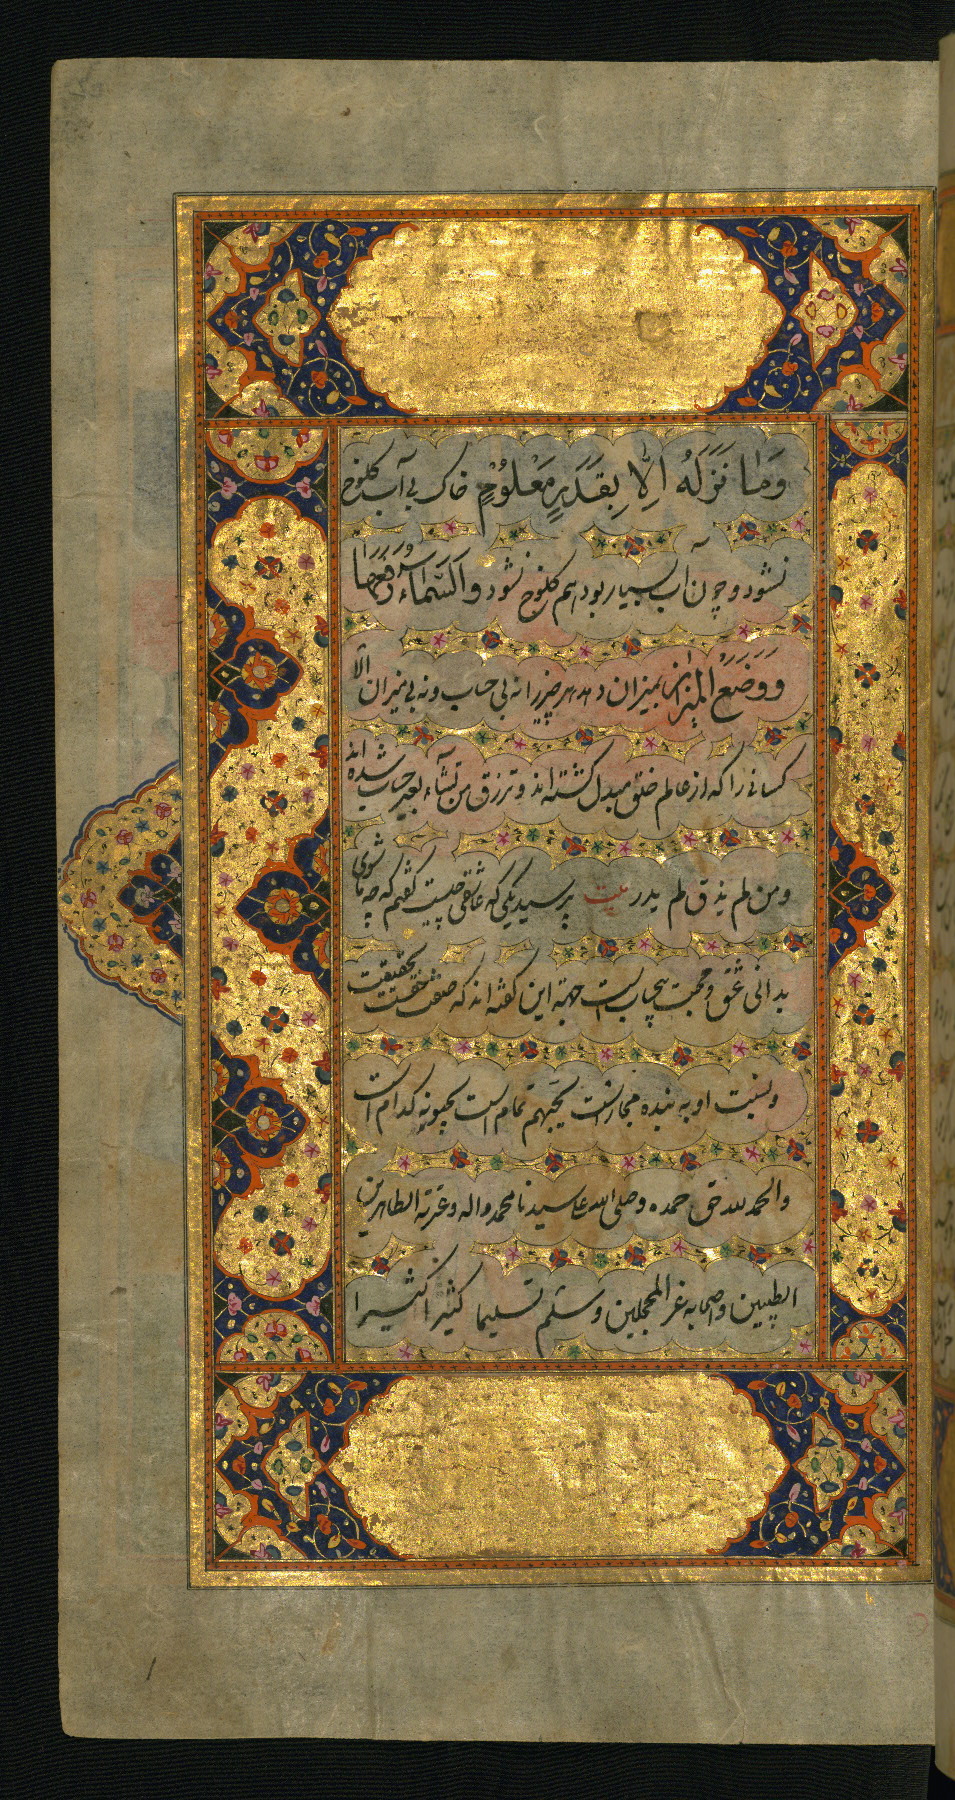 وَمٰا نُنَزِّلُهُ اِلاّٰ بِقَدَرٍ مَعْلُوْمٍ خاک بی آب کلوخ
نشود و چون آب بسیار بود هم کلوخ نشود وَالسَّمَاءَ رَفَعَهَا
وَوَضَعَ الْمِیْزانَ بمیزان دهد هر چیز را نه بی حساب و نه بی میزان الا
کسانی را که از عالم خلق مبدل گشته اند و ترزق من تشاء بغیر حساب شده اند
ومن لم یذق لم یدر بیت پرسید یکی که عاشقی چیست گفتم که چو ما شوی
بدانی عشق و محبت بیحساب است جهة این گفته اند که صفت حقست بحقیقت
و نسبت او به بنده مجازست یحبهم تمام است یحبونه کدام است
والحمد لله حق حمده وصلی الله علی سیدنا محمد واله وعترته الطاهرین
الطیبین واصحابه غر المحجلین وسلم تسلیما کثیرا کثیرا